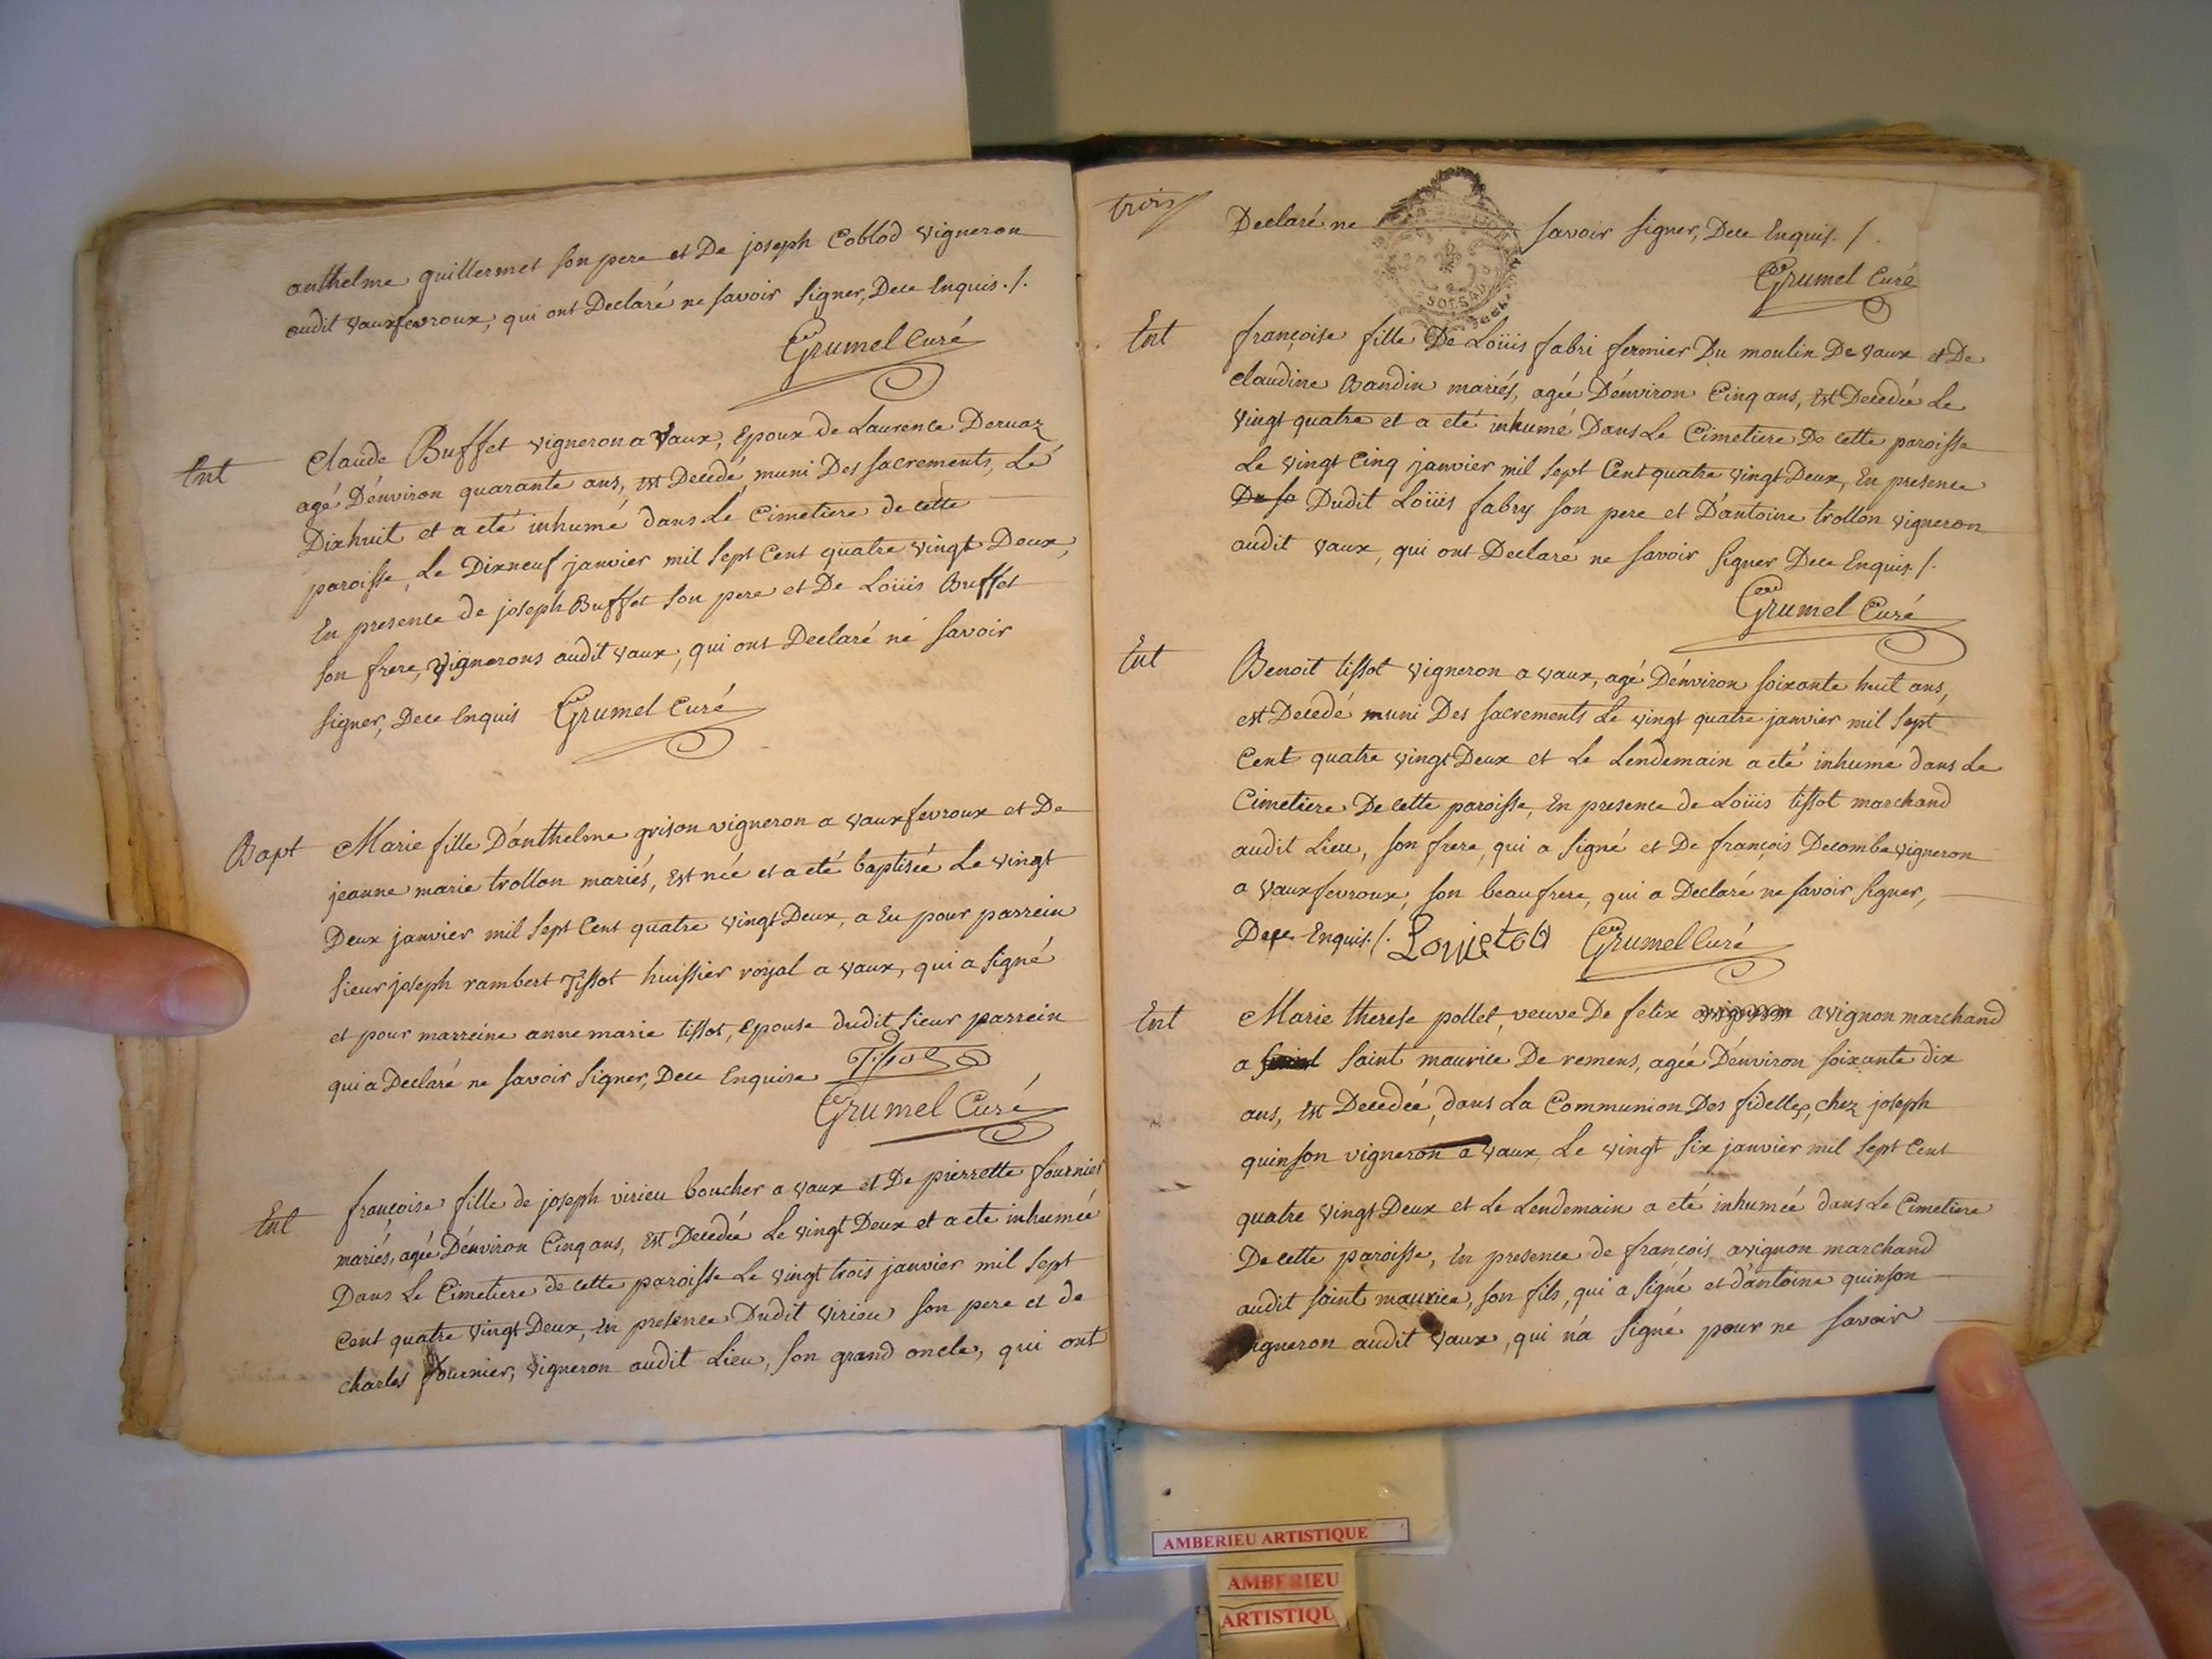 anthelme guillermet son pere et De joseph Coblod vigneron
audit vauxfevroux, qui ont Declaré ne savoir signer, Dece Enquis ./.
Grumel Curé
Ent
Claude Buffet vigneron a Vaux, Epoux de Laurence Dervaz
agé D'énviron quarante ans, est Decedé, muni Des sacrements, Lé
Dixhuit et a eté inhumé dans Lé Cimetiere de cette
paroisse, Le Dixneuf janvier mil sept Cent quatre vingt Deux,
En presence de joseph Buffet son pere et De Loüis Buffet
son frere, vignerons audit vaux, qui ont Declaré né savoir
signer, Dece Enquis Grumel Curé
Bapt
Marie fille D'anthelme grison vigneron a vauxfevroux et De
jeanne marie trollon mariés, est née et a eté baptisée Le vingt
Deux janvier mil sept Cent quatre vingt Deux, a Eu pour parrein
sieur joseph rambert Tissot huissier royal a vaux, qui a signé
et pour marreine anne marie tissot, Epouse dudit sieur parrein
qui a Declaré ne savoir signer, Dece Enquise Tissot
Grumel Curé
Ent
françoise fille de joseph virieu boucher a vaux et De pierrette fournier
mariés, agée D'énviron Cinq ans, Est Decedée Le vingt Deux et a eté inhumée
Dans Le Cimetiere de cette paroisse Le vingt trois janvier mil sept
Cent quatre vingt Deux, En presence Dudit virieu son pere et de
charles fournier, vigneron audit Lieu, son grand oncle, qui ont
trois
Declaré ne savoir signer, Dece Enquis ./.
Grumel Curé
Ent
françoise fille De Loüis fabri fermier Du moulin De vaux et De
claudine Bandin mariés, agée D'énviron Cinq ans, Est Decedée Le
vingt quatre et a eté inhumé Dans Le Cimetiere De cette paroisse
Le vingt Cinq janvier mil sept Cent quatre vingt Deux, En presence
De so Dudit Loüis fabry son pere et D'antoine trollon vigneron
audit vaux, qui ont Declaré ne savoir signer Dece Enquis ./.
Grumel Curé
Ent
Benoit tissot vigneron a vaux, agé D'énviron soixante huit ans,
est Decedé muni Des sacrements Le vingt quatre janvier mil sept
Cent quatre vingt Deux et Le Lendemain a eté inhumé dans Le
Cimetiere De cette paroisse, En presence de Loüis tissot marchand
audit Lieu, son frere, qui a signé et De françois Decombe vigneron
a vauxfevroux, son beaufrere, qui a Declaré ne savoir signer,
Dece Enquis ./. Grumel Curé
Ent
Marie therese pollet, veuve De felix avignon marchand
a saint maurice De remens, agée D'énviron soixante dix
ans, Est Decedée, dans La Communion Des fidelles, chez joseph
quinson vigneron a vaux, Le vingt six janvier mil sept Cent
quatre vingt Deux et Le Lendemain a eté inhumée dans Le Cimetiere
De cette paroisse, En presence de françois avignon marchand
audit saint maurice, son fils, qui a signé et d'antoine quinson
vigneron audit vaux, qui n'a signé pour ne savoir
AMBERIEU ARTISTIQUE
AMBERIEU
ARTISTIQU